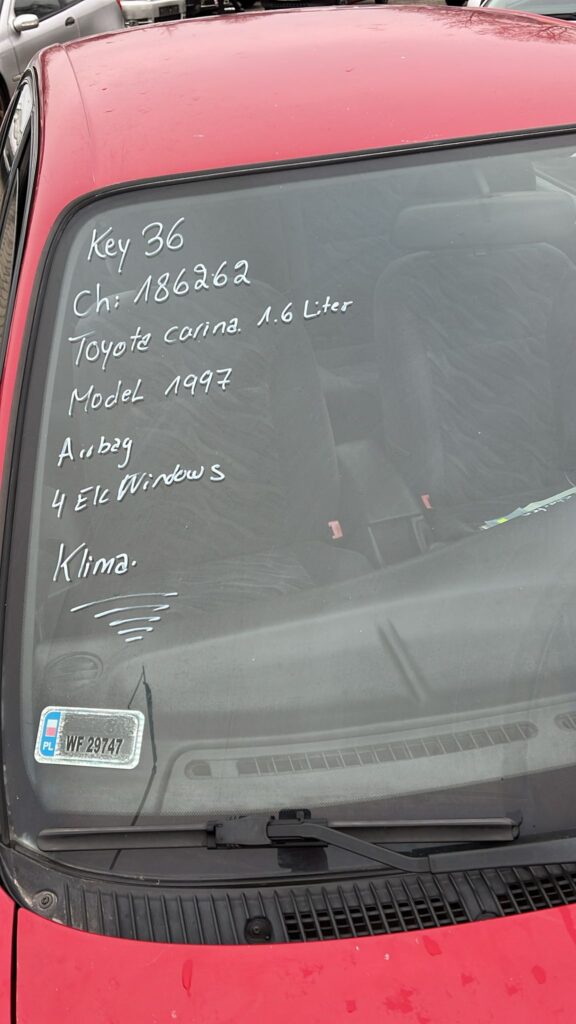 Key 36
Ch: 186262
Toyota carina. 1.6 Liter
Model 1997
Airbag
4 Elc Windows
Klima.
PL WF 29747